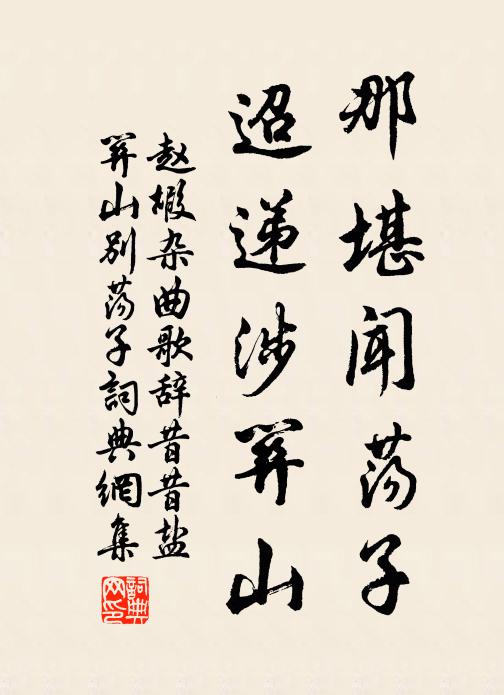 那堪闻荡子
迢递涉关山
赵嘏杂曲歌辞昔昔盐
关山别荡子詞典網集
詞典网印